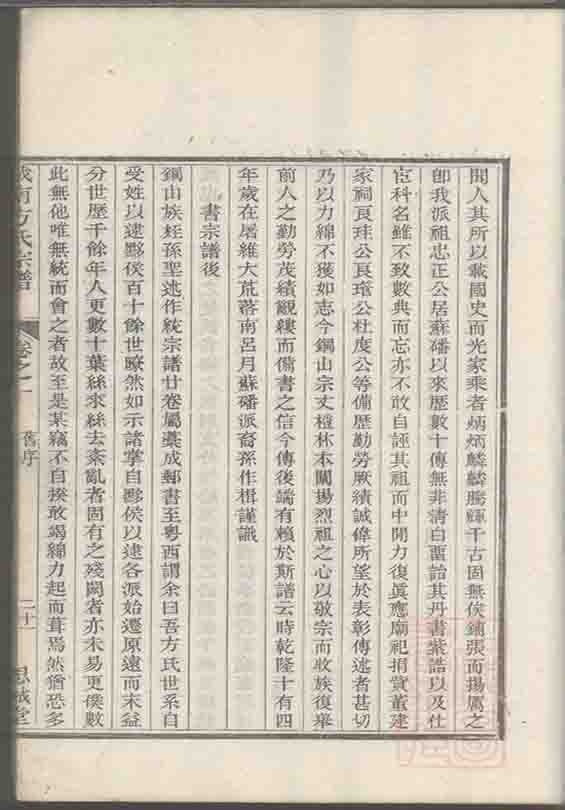 聞人其所以載國史而光家乘者炳炳麟麟騰輝千古固無俟鋪張而揚厲之
卽我派祖忠正公居蘇磻以來歷數十傳無非清白畱詒其丹書紫誥以及仕
宦科名雖不致數典而忘亦不敢自誣其祖而中間力復眞應廟祀捐貲董建
家祠良珪公良璔公杜度公等備歷勤勞厥績誠偉所望於表彰傳述者甚切
乃以力綿不獲如志今鋼山宗丈檀林本闡揚烈祖之心以敬宗而收族復舉
前人之勤勞茂績覼縷而備書之信今傳後端有賴於斯譜云時乾隆十有四
年歲在屠維大荒落南呂月蘇磻派裔孫作楫謹識
書宗譜後
鋼山族姪孫聖述作統宗譜廿卷屬藁成郵書至粵西謂余曰吾方氏世系自
受姓以逮黟侯百十餘世瞭然如示諸掌自黟侯以逮各派始遷原遠而末益
分世歷千餘年人更數十葉絲來絲去紊亂者固有之殘闕者亦未易更僕數
此無他唯無統而會之者故至是某竊不自揆敢竭綿力起而葺焉然猶恐多
城南方氏宗譜
卷之一
舊序
二十一
思誠堂